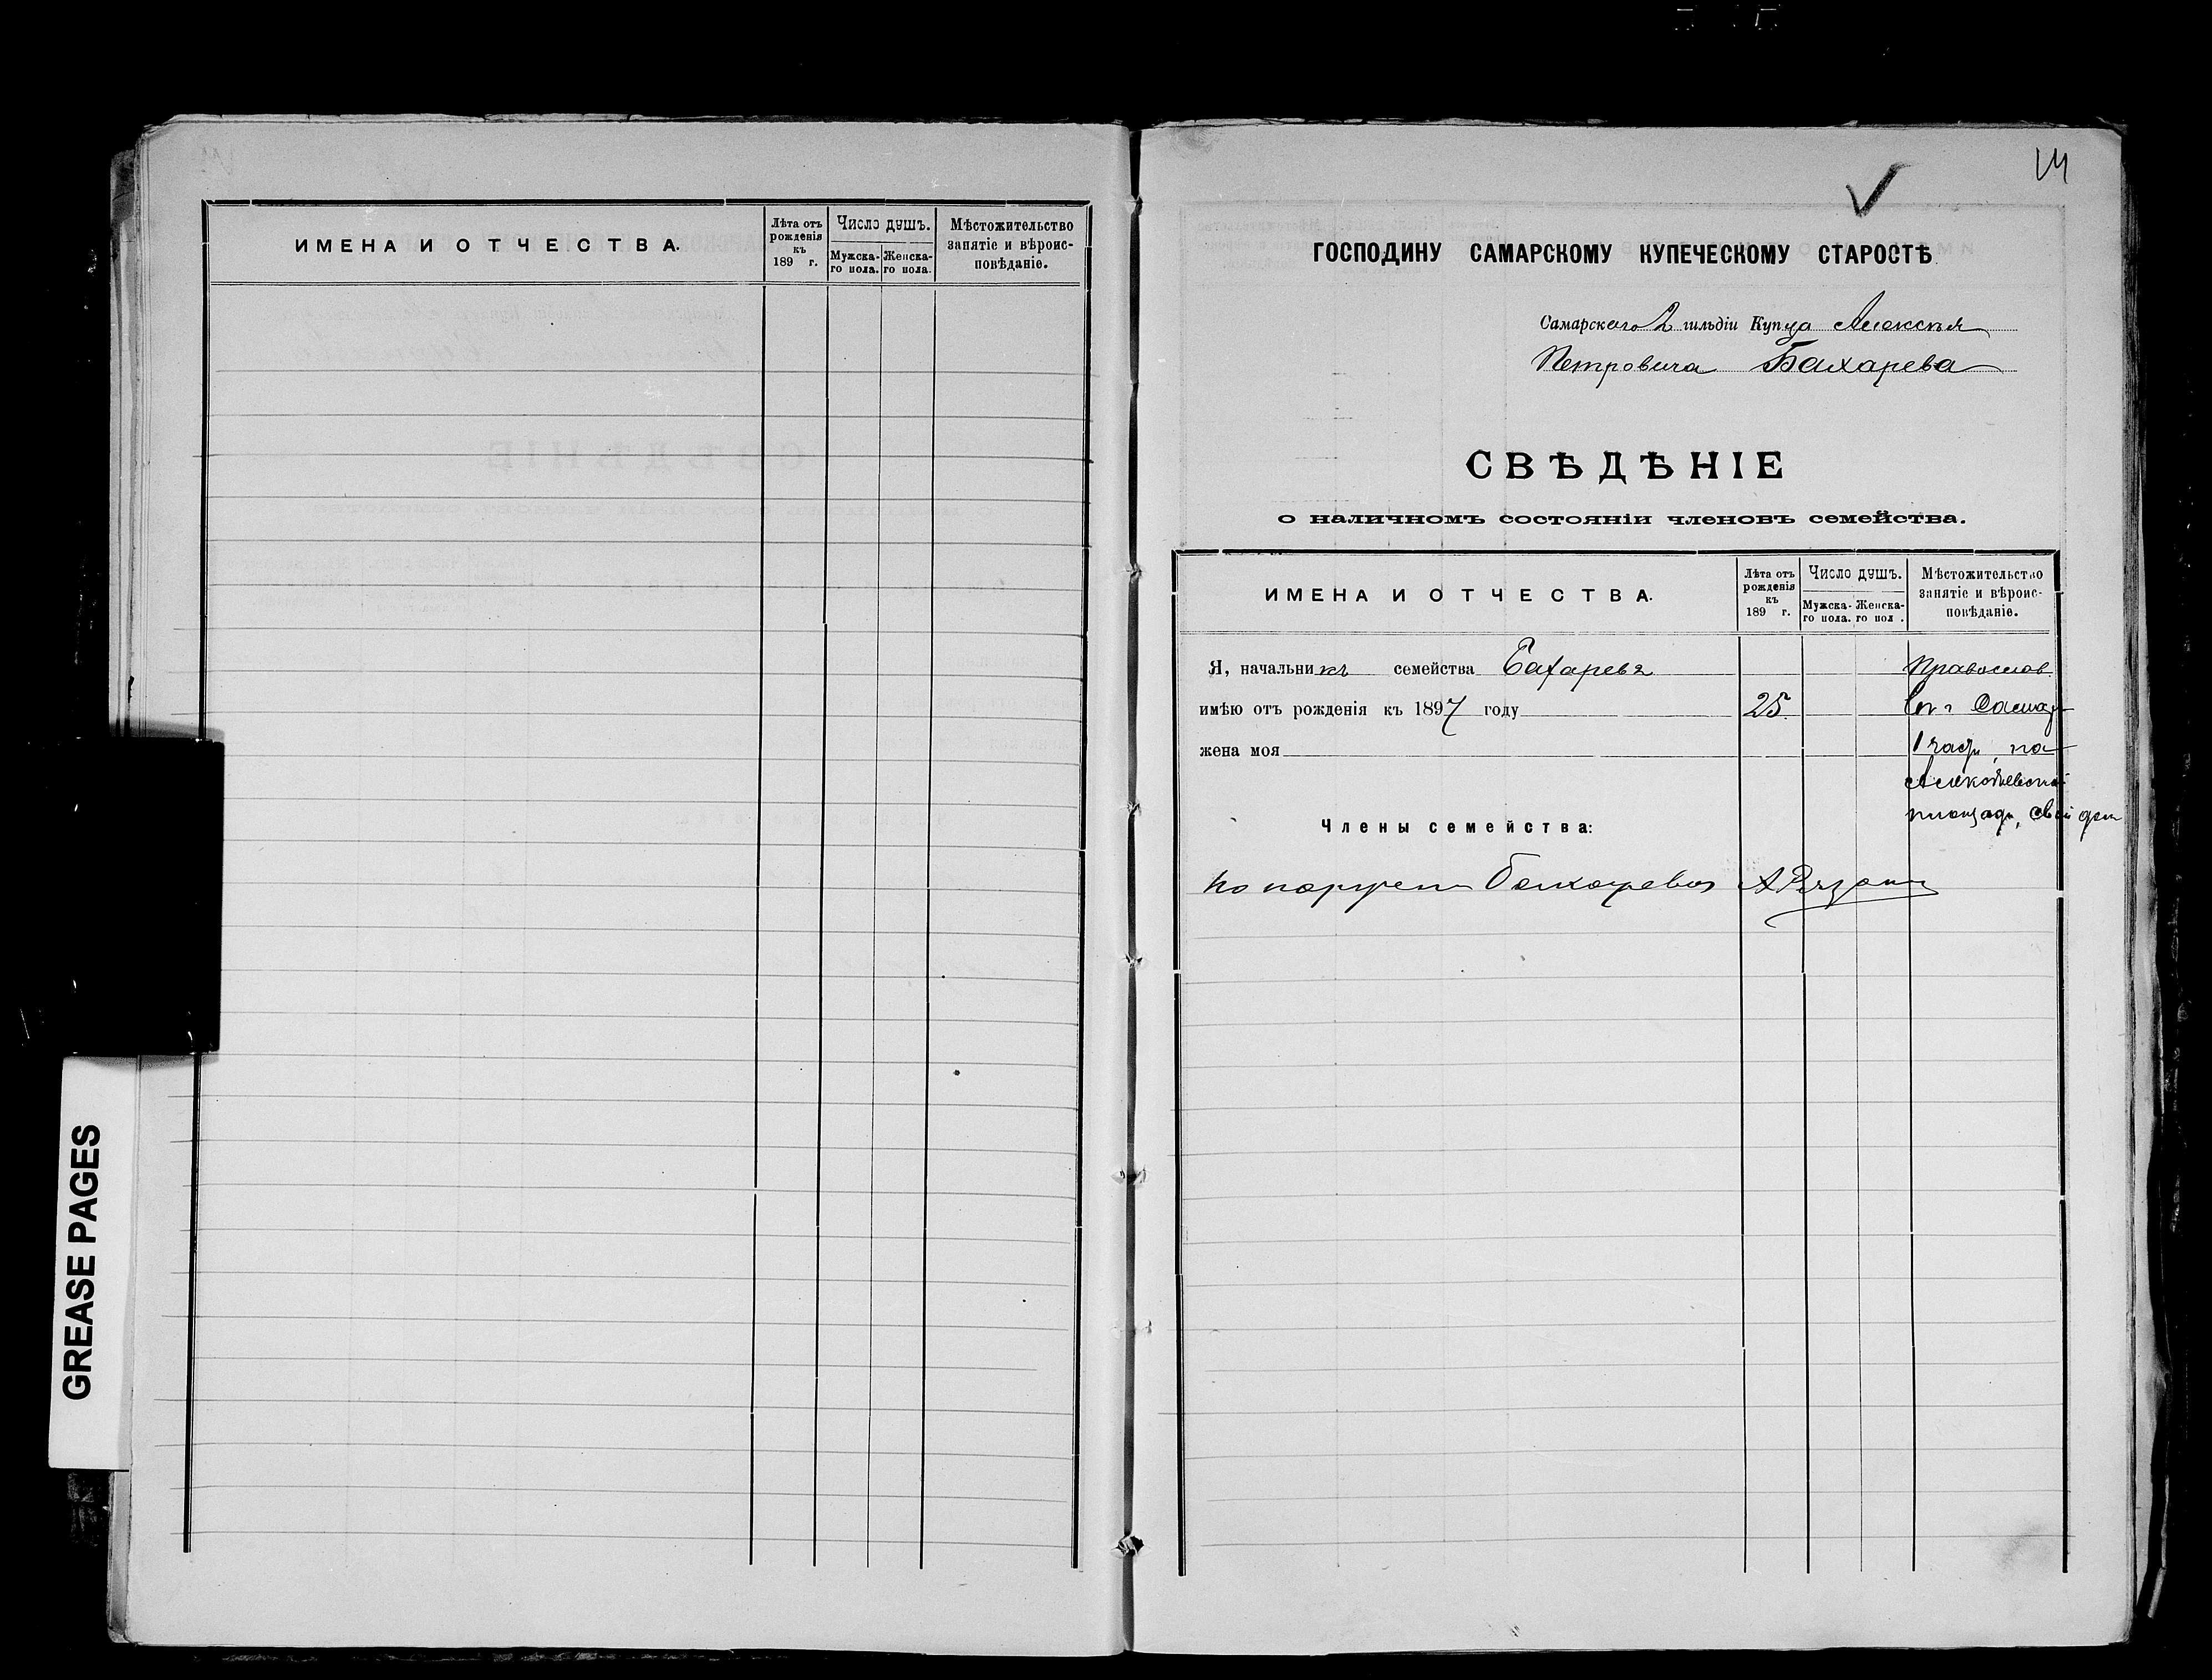 ИМЕНА И ОТЧЕСТВА.
Лѣта отъ рожденія къ 189 г.
Число душъ.
Мужска-го пола.
Женска-го пола.
Мѣстожительство занятіе и вѣроис-повѣданіе.
GREASE PAGES
14
ГОСПОДИНУ САМАРСКОМУ КУПЕЧЕСКОМУ СТАРОСТѢ
Самарскаго 2 гильдіи Купца Алексѣя
Петровича Бахарева
СВѢДѢНІЕ
о наличномъ состояніи членовъ семейства.
ИМЕНА И ОТЧЕСТВА.
Лѣта отъ рожденія къ 189 г.
Число душъ.
Мужска-го пола.
Женска-го пол .
Мѣстожительство занятіе и вѣроис-повѣданіе.
Я, начальникъ семейства Бахаревъ Православ.
имѣю отъ рожденія къ 1897 году 25 въ г Самар
жена моя 1 части, на
Алексѣевской
площади, свой дом
Члены семейства:
По